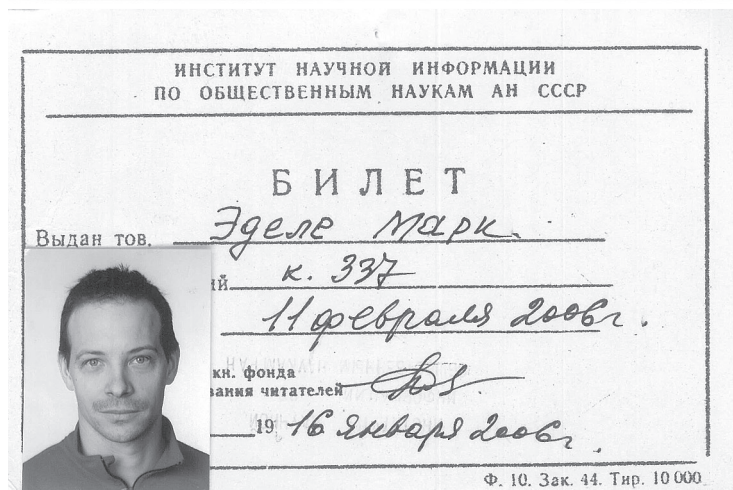 ИНСТИТУТ НАУЧНОЙ ИНФОРМАЦИИ
ПО ОБЩЕСТВЕННЫМ НАУКАМ АН СССР
БИЛЕТ
Выдан тов. Эделе Марк.
ий к. 337
11 февраля 2006г.
кн. фонда
вания читателей
19 16 января 2006г.
Ф. 10. Зак. 44. Тир. 10 000